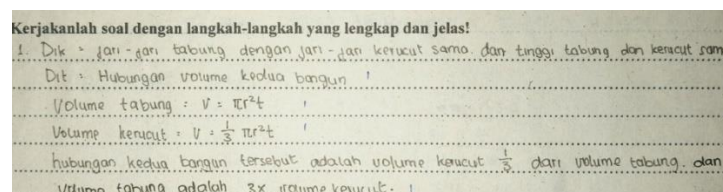 Kerjakanlah soal dengan langkah-langkah yang lengkap dan jelas!
1. Dik : jari-jari tabung dengan jari-jari kerucut sama. dan tinggi tabung dan kerucut sam
Dit : Hubungan volume kedua bangun
Volume tabung : V = πr²t
Volume kerucut : V = 1/3 πr²t
hubungan kedua bangun tersebut adalah volume kerucut 1/3 dari volume tabung. dan
Volume tabung adalah 3x volume kerucut.